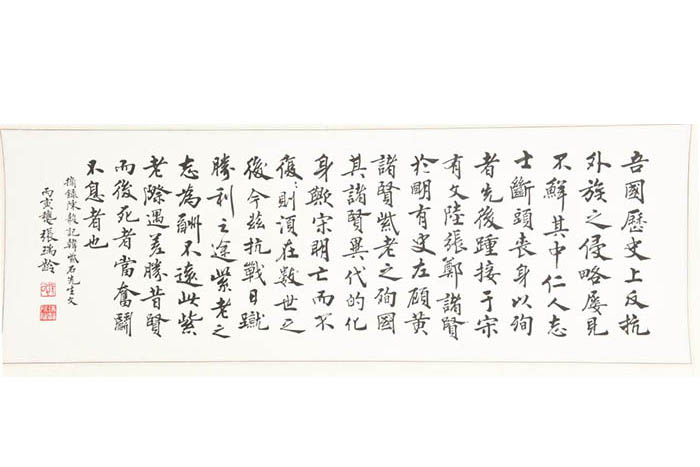 吾國歷史上反抗
外族之侵略屢見
不鮮其中仁人志
士斷頭喪身以殉
者先後踵接于宋
有文陸張鄭諸賢
於明有史左顧黃
諸賢紫老之殉國
其諸賢異代的化
身歟宋明亡而不
復則須在數世之
後今茲抗戰日蹴
勝利之途紫老之
志為酬不遠此紫
老際遇差勝昔賢
而後死者當奮鬭
不息者也
摘錄陳毅記韓紫石先生文
丙寅 張瑞齡